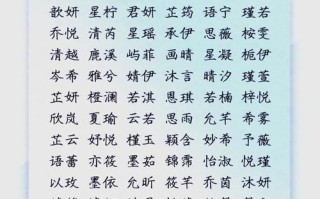 歆妍 星柠 君妍 芷筠 语宁 瑾若
乔悦 清芮 星瑶 承伊 思薇 桉雯
清越 鹿溪 屿菲 画晴 星凝 栀伊
岑希 雅兮 婧伊 沐言 晴汐 瑾萱
芷妍 橙澜 若淇 恩琪 若楠 梓悦
欣岚 夏瑜 云若 思雨 允芊 希雾
芷云 妤悦 槿玉 颖含 妙希 予薇
语蕾 亦筱 墨茹 锦霈 怡淑 悦瑾
以玫 墨依 允昕 筱芊 乔茵 沐妍